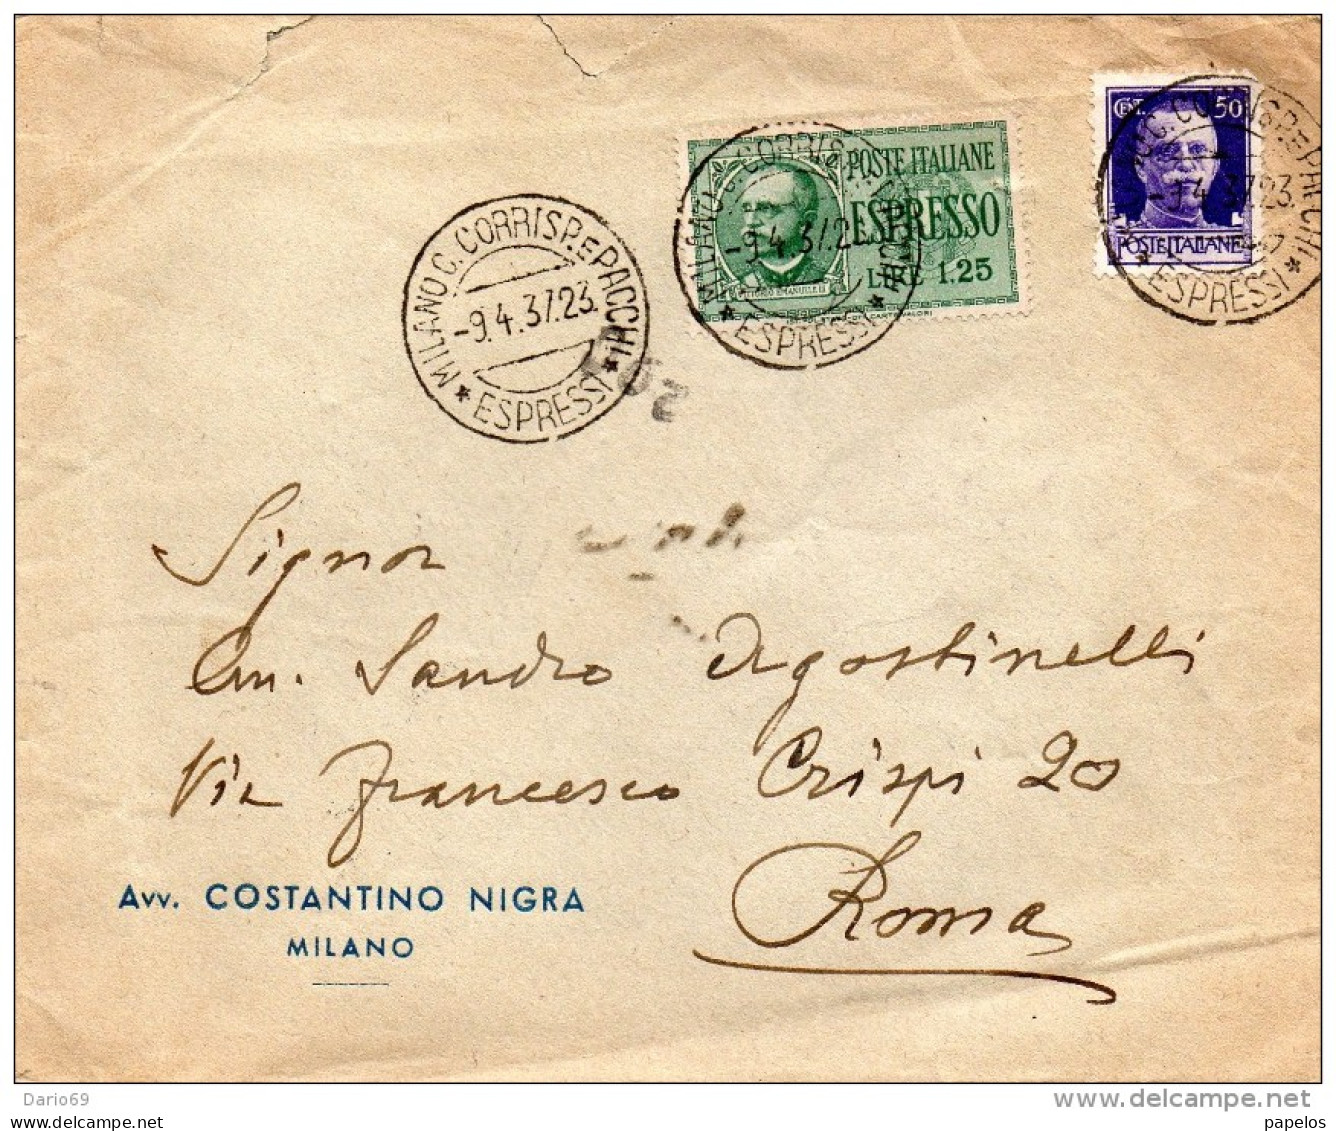 CENT. 50
POSTE ITALIANE
POSTE ITALIANE
ESPRESSO
LIRE 1.25
VITTORIO EMANUELE III
MILANO C. CORRISP. E PACCHI
-9.4.37.23.
* ESPRESSI *
MILANO C. CORRISP. E PACCHI
-9.4.37.23
* ESPRESSI *
MILANO C. CORRISP. E PACCHI
-9.4.37.23
* ESPRESSI *
Signor
Sandro Agostinelli
Via Francesco Crispi 20
Roma
Avv. COSTANTINO NIGRA
MILANO
Dario69
delcampe.net
delcampe.net
papelos